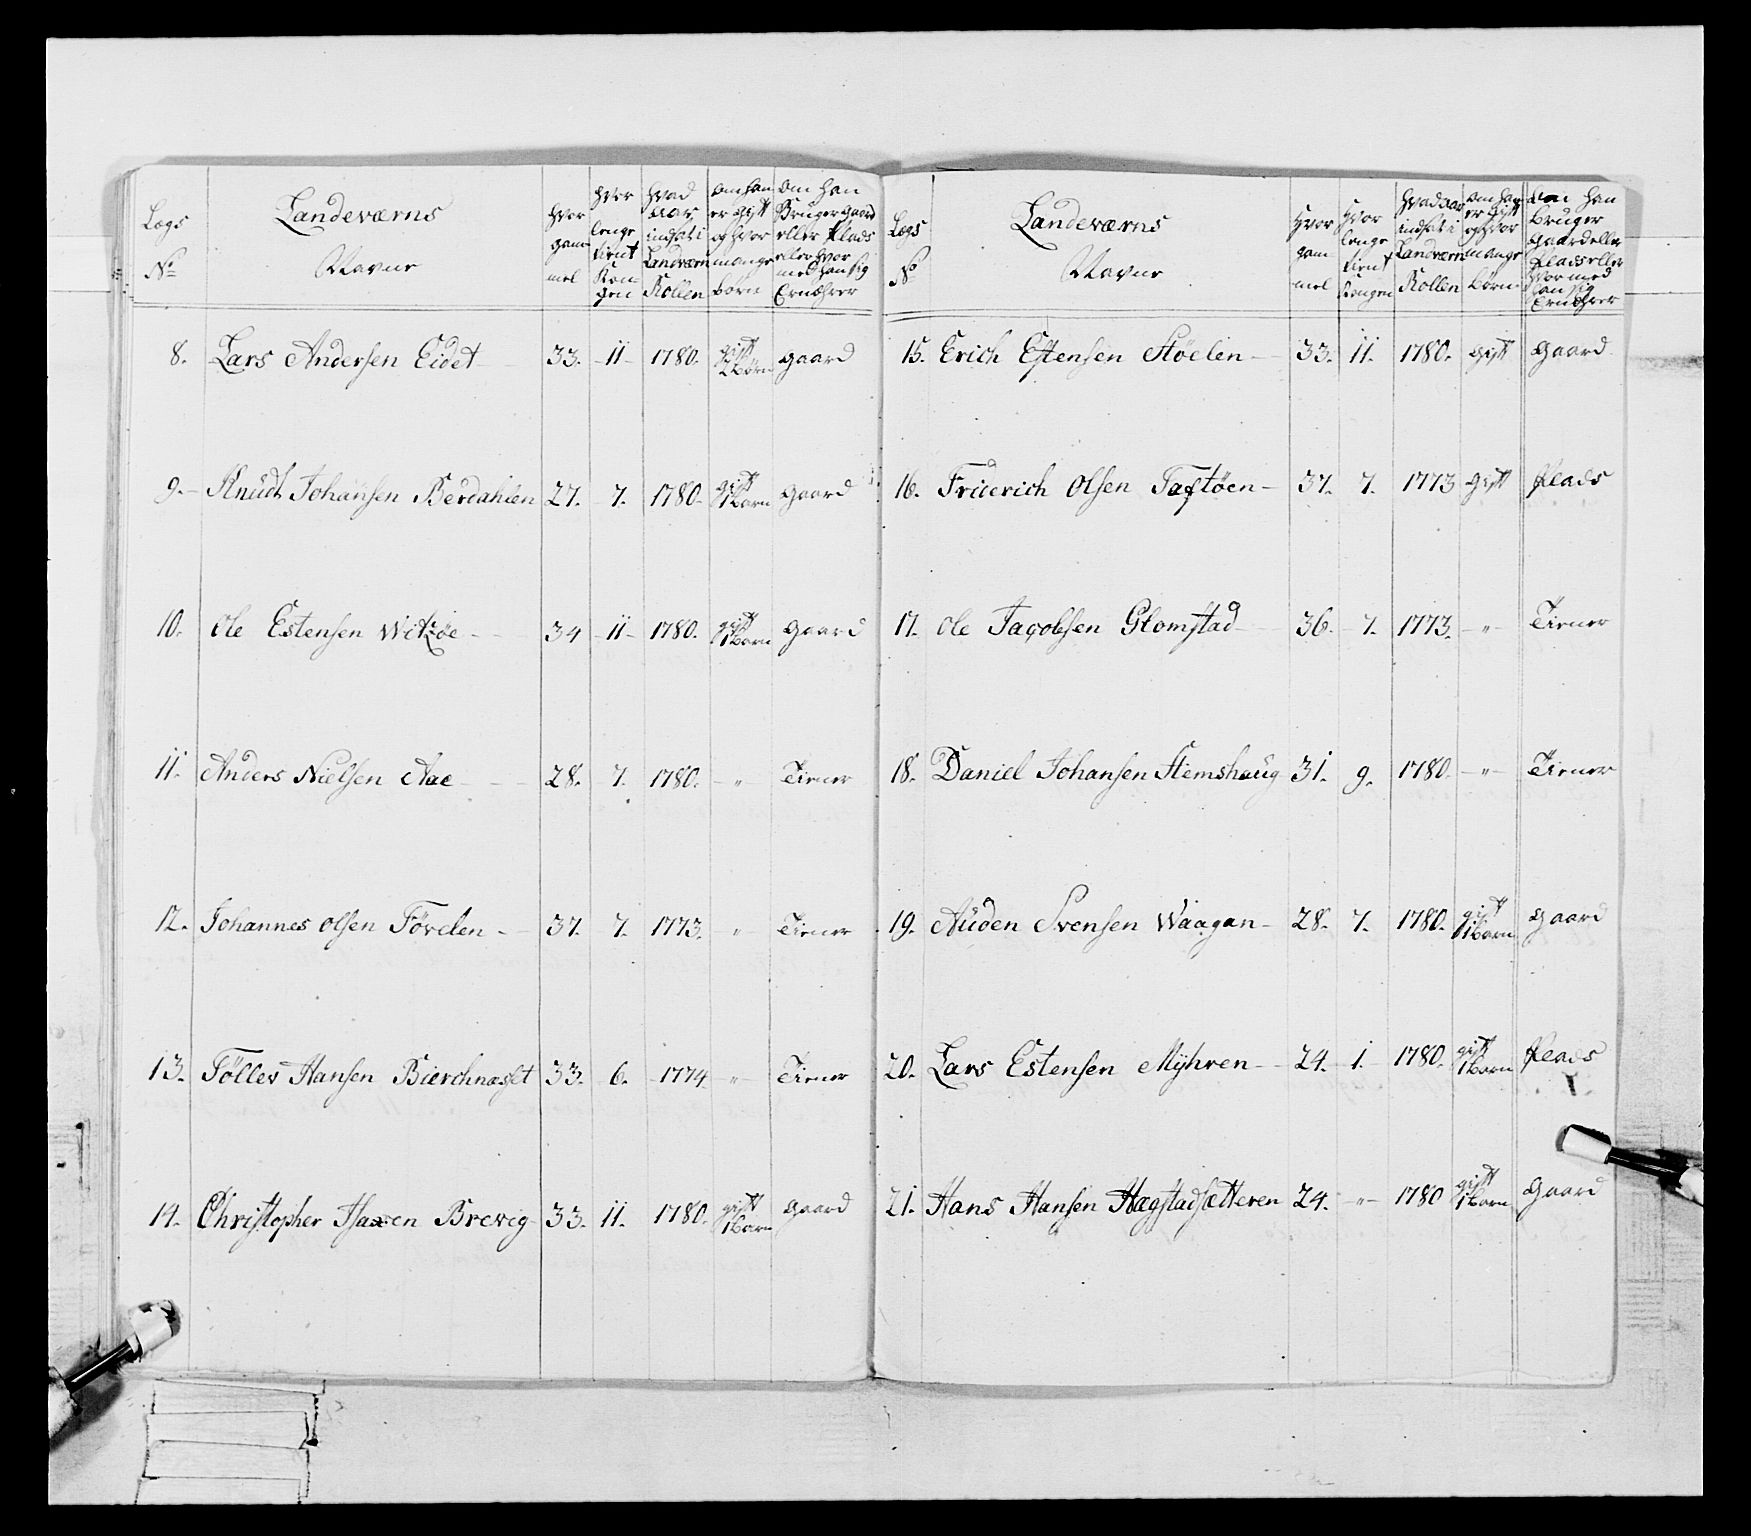 Lægs
No
Landeværns
Navne
Hvor
gam-
mel
hvor
lenge
tient
Kon-
gen
hvad
aar
indsat i
Landværn
Rollen
om han
er gift
og hvor
mange
børn
om han
Bruger gaard
eller Plads
eller hvor
med han sig
Ernæhrer
8. Lars Andersen Eidet 33. 11 1780. gift 2 Børn gaard
9. Knudt Johansen Berdahlen 27. 7. 1780. gift 1 Barn gaard
10. Ole Estensen Witsøe 34 11 1780. gift 1 Barn gaard
11. Anders Nielsen Aae 28. 7. 1780. " Tiener
12. Johannes Olsen Førelen 37. 7. 1773. " Tiener
13. Føller Hansen Bierchnæsset 33. 6. 1774 " Tiener
14. Christopher Isaxen Brevig 33. 11. 1780. gift 1 Barn gaard
Lægs
No
Landeværns
Navne
Hvor
gam-
mel
Hvor
lenge
tient
Kongen
Hvad aar
indsat i
Landværn
Rollen
om han
er gift
og hvor
mange
børn
om han
bruger
gaard eller
Plads eller
hvor med
han sig
Ernæhrer
15. Erich Estensen Støelen 33. 11. 1780. gift gaard
16. Friderich Olsen Taftøen 37. 7. 1773 gift Plads
17. Ole Jacobsen Glomstad 36. 7. 1773. " Tiener
18. Daniel Johansen Stemshaug 31. 9. 1780. " Tiener
19. Auden Svensen Waagan 28. 7. 1780. gift 1 Barn gaard
20. Lars Estensen Myhren 24. 1. 1780. gift 1 Barn Plads
21. Hans Hansen Hægstadsætteren 24. " 1780 gift 1 Barn gaard